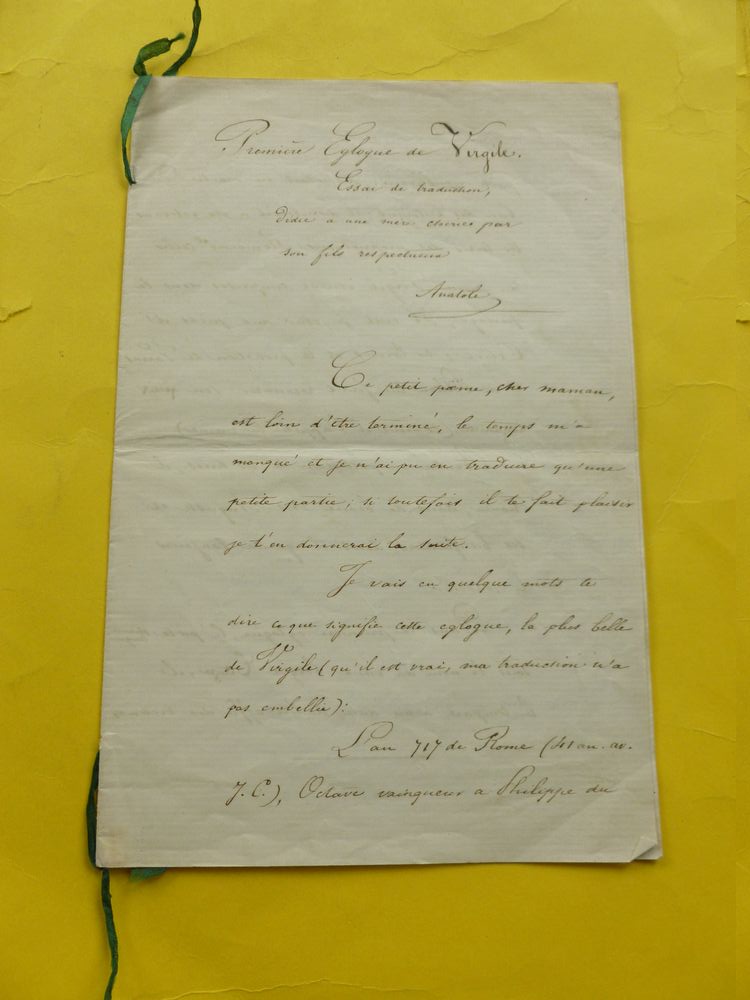 Première Eglogue de Virgile.
Essai de traduction,
dédié a une mère chérie par
son fils respectueux
Anatole
Ce petit poëme, cher maman,
est loin d'être terminé, le temps m'a
manqué et je n'ai pu en traduire qu'une
petite partie; si toutefois il te fait plaisir
je t'en donnerai la suite.
Je vais en quelque mots te
dire ce que signifie cette eglogue, la plus belle
de Virgile (qu'il est vrai, ma traduction n'a
pas embellie):
L'an 717 de Rome (41 an. av.
J. C.), Octave vainqueur a Philippe du